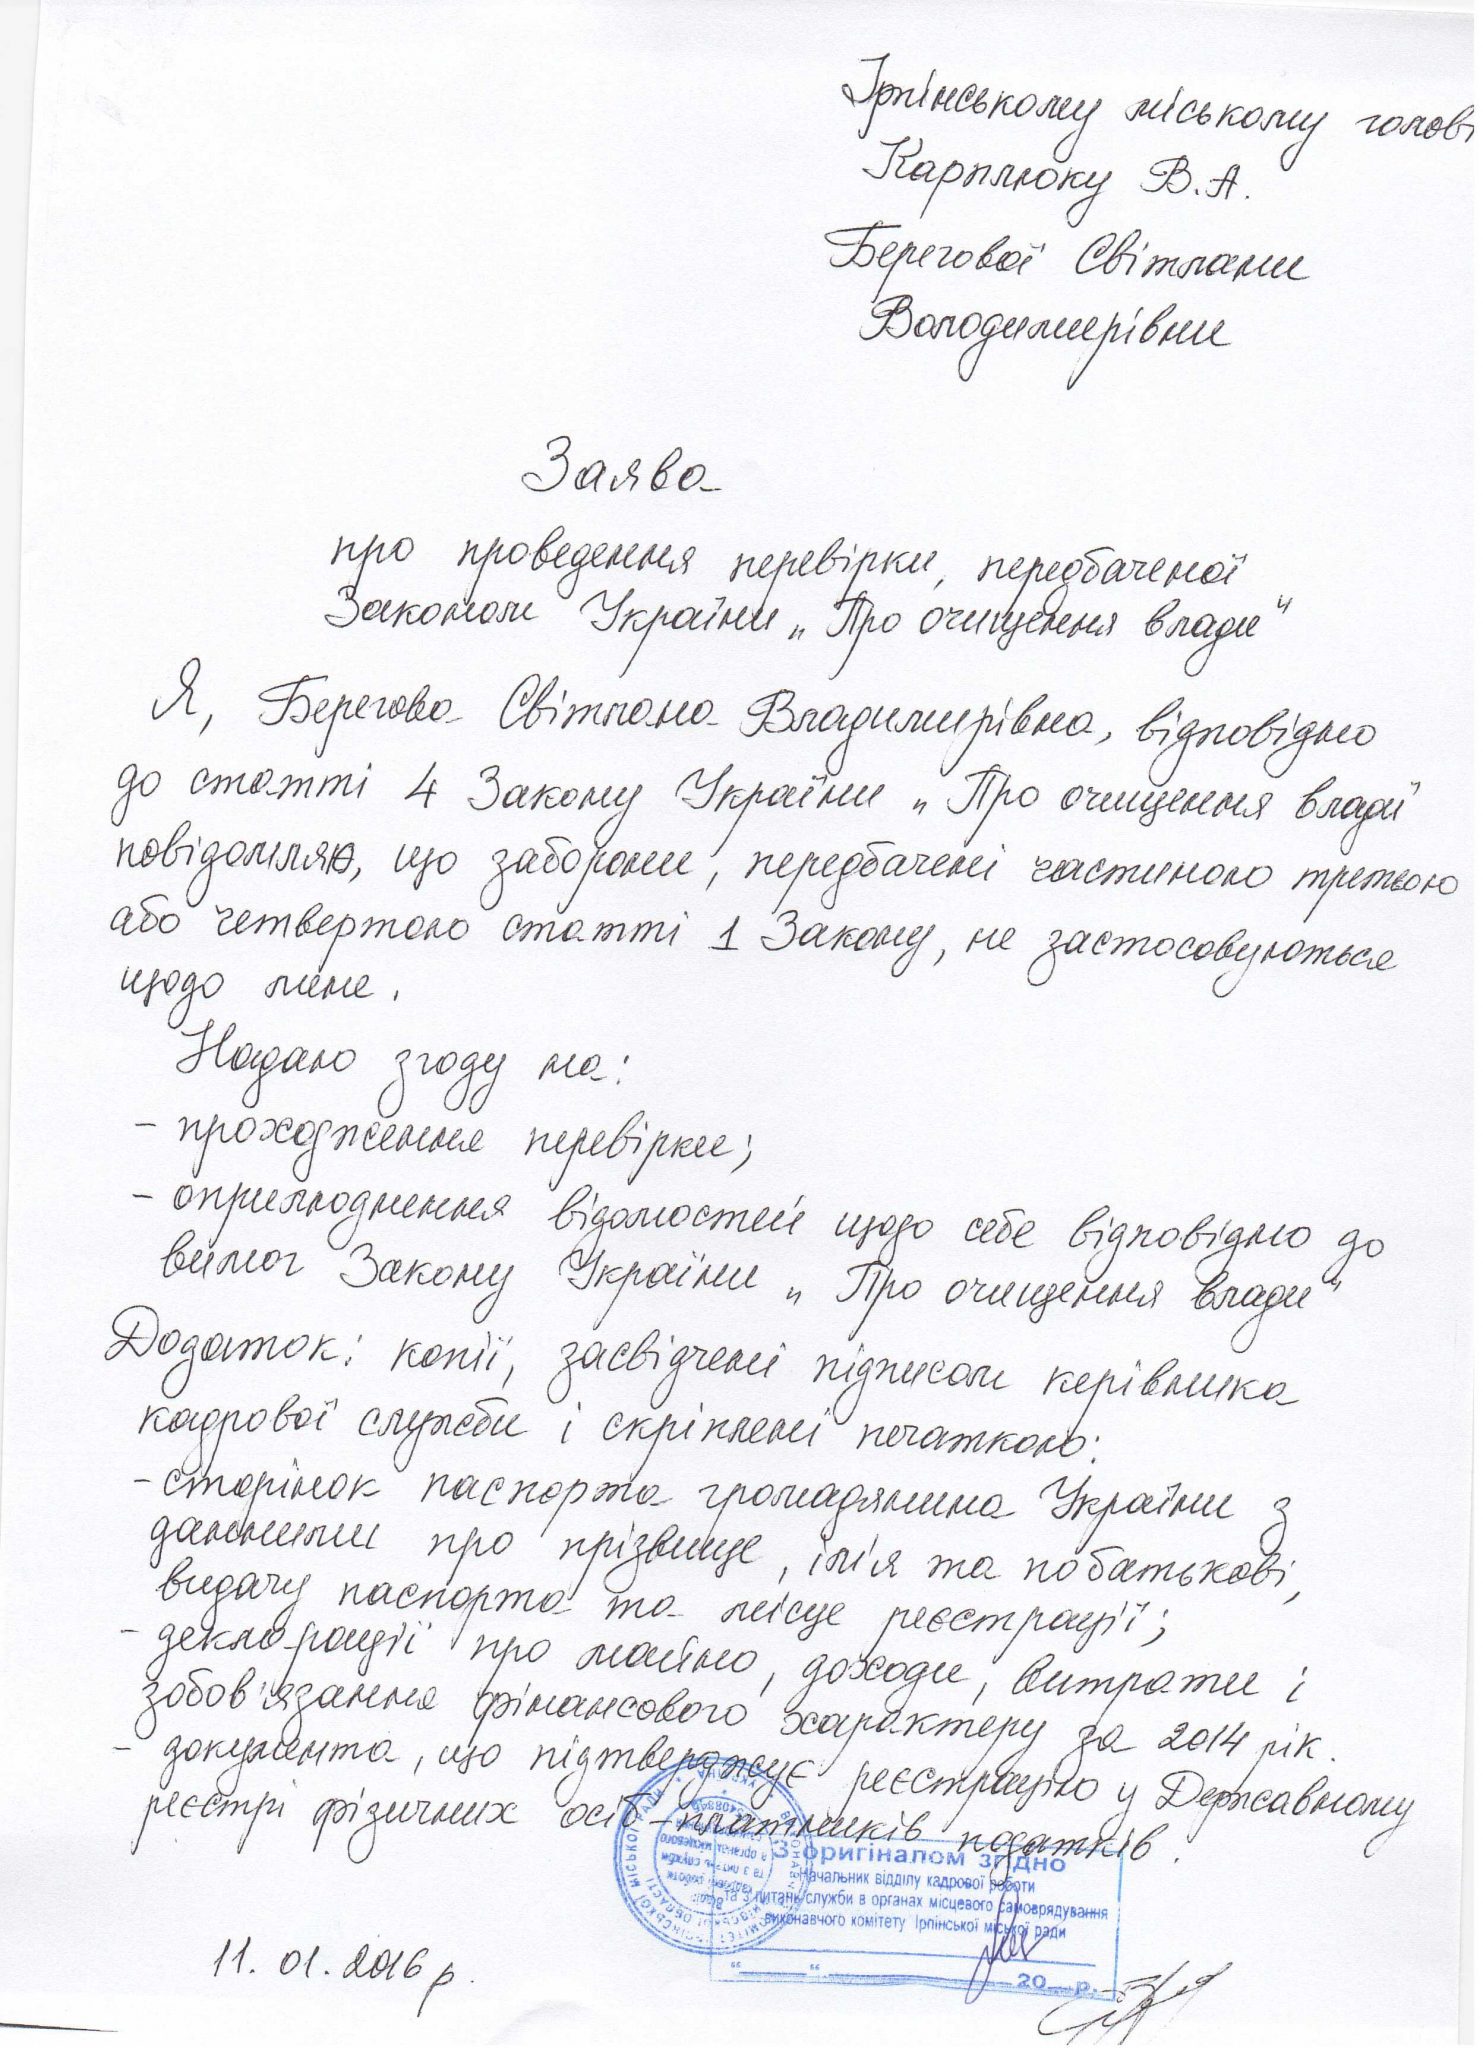 Ірпінському міському голові
Карплюку В.А.
Берегової Світлани
Володимирівни
Заява
про проведення перевірки, передбаченої
Законом України „Про очищення влади"
Я, Берегова Світлана Владимирівна, відповідно
до статті 4 Закону України „Про очищення влади
повідомляю, що заборони, передбачені частиною третьою
або четвертою статті 1 Закону, не застосовуються
щодо мене.
Надаю згоду на:
- проходження перевірки;
- оприлюднення відомостей щодо себе відповідно до
вимог Закону України „Про очищення влади"
Додаток: копії, засвідчені підписом керівника
кадрової служби і скріплені печаткою:
- сторінок паспорта громадянина України з
данними про прізвище, ім'я та побатькові,
видачу паспорта та місце реєстрації;
- декларації про майно, доходи, витрати і
зобов'язання фінансового характеру за 2014 рік.
- документа, що підтверджує реєстрацію у Державному
реєстрі фізичних осіб-платників податків.
З оригіналом згідно
Начальник відділу кадрової роботи
та з питань служби в органах місцевого самоврядування
виконавчого комітету Ірпінської міської ради
"____" ____ 20__ р.
11.01.2016 р.